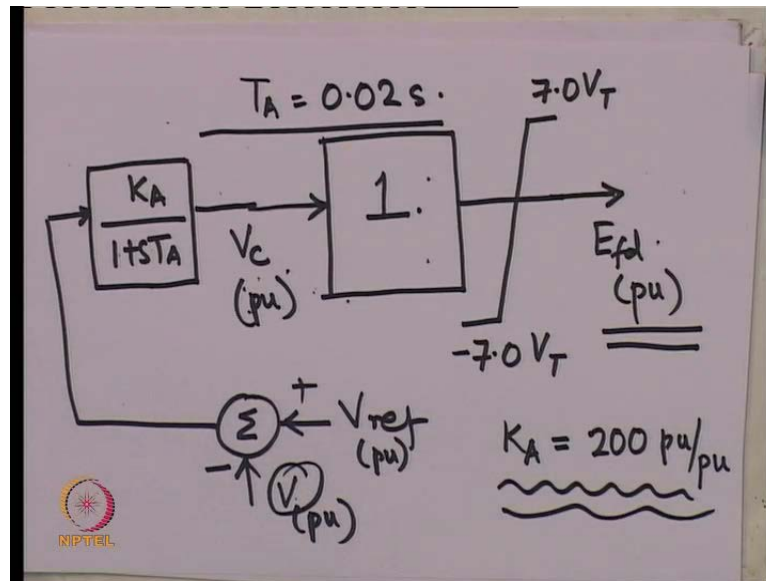 T_A = 0.02 s.
7.0 V_T
K_A
1+sT_A
V_C
(pu)
1.
E_fd.
(pu)
-7.0 V_T
Σ
+
V_ref
(pu)
-
V
(pu)
K_A = 200 pu/pu
NPTEL